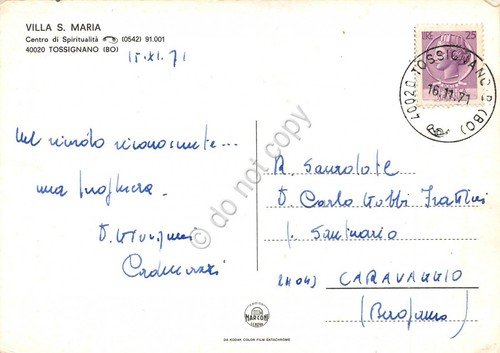 VILLA S. MARIA
Centro di Spiritualità (0542) 91.001
40020 TOSSIGNANO (BO)
15.XI.71
LIRE 25
40020 TOSSIGNANO (BO)
16.11.71
nel ricordo riconoscente...
una preghiera.
D.
R. Sacerdote
D. Carlo Gobbi Frattini
Santuario
24043 CARAVAGGIO
(Bergamo)
do not copy
MARCONI
GENOVA
DA KODAK COLOR FILM EKTACHROME